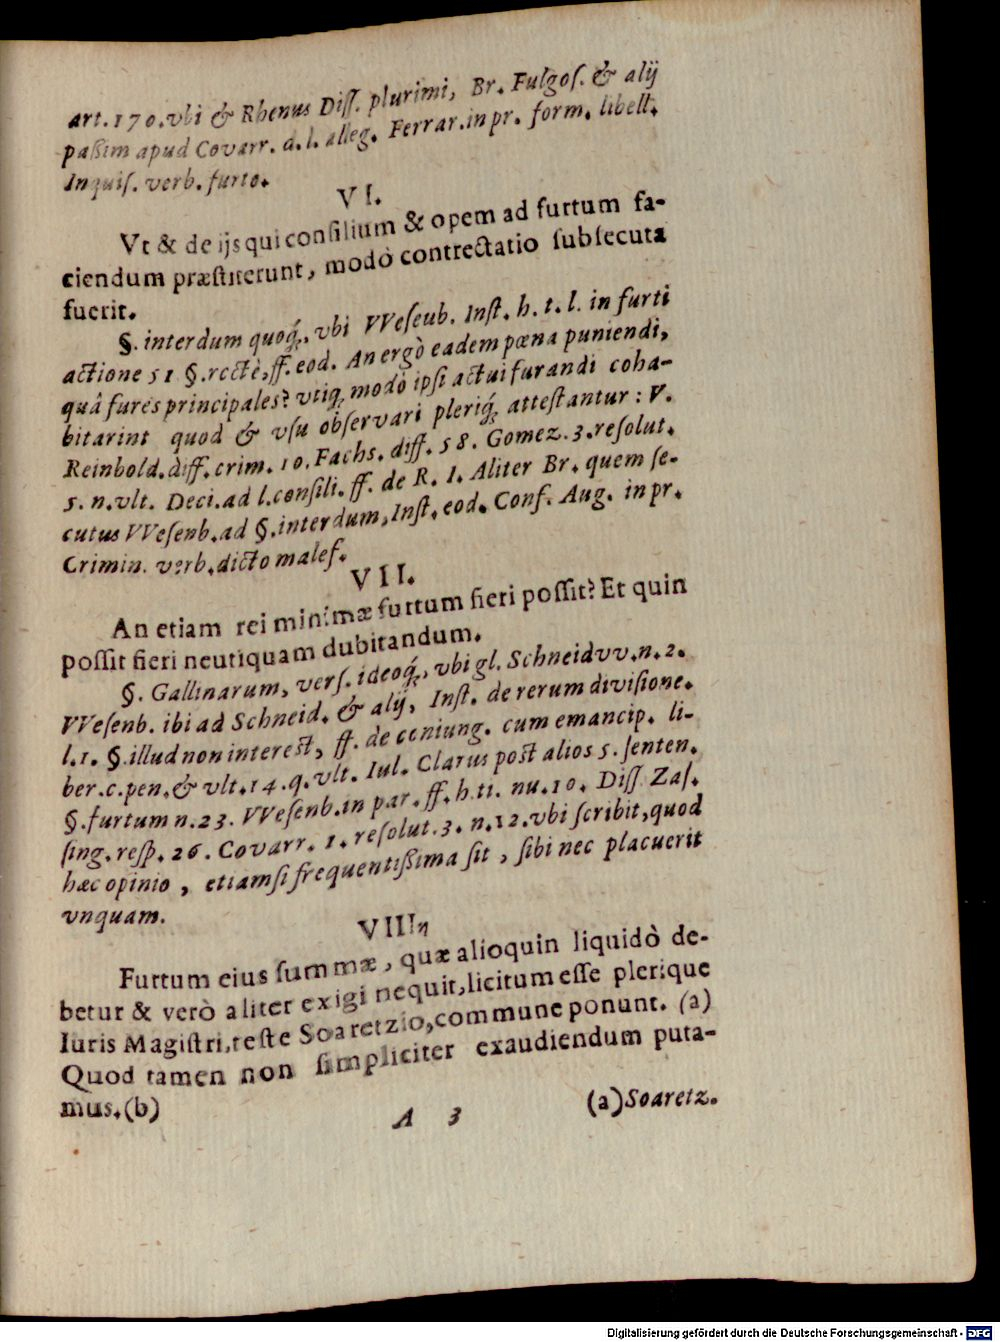 art. 170. vbi & Rhenus Diſſ. plurimi, Br. Fulgoſ. & alij
paßim apud Covarr. d. l. alleg. Ferrar. in pr. form. libell.
Inquiſ. verb. furto.
VI.
Vt & de ijs qui conſilium & opem ad furtum fa-
ciendum præſtiterunt, modò contrectatio ſubſecuta
fuerit.
§. interdum quoq́;, vbi VVeſeub. Inſt. h. t. l. in furti
actione 51 §. rectè, ff. eod. An ergò eadem pœna puniendi,
quâ fures principales? vtiq; modò ipſi actui furandi coha-
bitarint quod & vſu obſervari pleriq́; atteſtantur: V.
Reinbold. diff. crim. 10. Fachs. diff. 58. Gomez. 3. reſolut.
5. n. vlt. Deci. ad l. conſili. ff. de R. I. Aliter Br. quem ſe-
cutus VVeſenb. ad §. interdum, Inſt. eod. Conſ. Aug. in pr.
Crimin. verb. dicto malef.
VII.
An etiam rei minimæ furtum fieri poſſit? Et quin
poſſit fieri neutiquam dubitandum.
§. Gallinarum, verſ. ideoq́;, vbi gl. Schneidvv. n. 2.
VVeſenb. ibi ad Schneid. & alij, Inſt. de rerum diviſione.
l. 1. §. illud non intereſt, ff. de coniung. cum emancip. li-
ber. c. pen. & vlt. 14. q. vlt. Iul. Clarus poſt alios 5. ſenten.
§. furtum n. 23. VVeſenb. in par. ff. h. ti. nu. 10. Diſſ Zaſ.
ſing. reſp. 26. Covarr. 1. reſolut. 3. n. 12. vbi ſcribit, quod
hæc opinio, etiamſi frequentißima ſit, ſibi nec placuerit
vnquam.
VIII.
Furtum eius ſummæ, quæ alioquin liquidò de-
betur & verò aliter exigi nequit, licitum eſſe plerique
Iuris Magiſtri, teſte Soaretzio, commune ponunt. (a)
Quod tamen non ſimpliciter exaudiendum puta-
mus. (b)
A 3 (a) Soaretz.
Digitalisierung gefördert durch die Deutsche Forschungsgemeinschaft - DFG